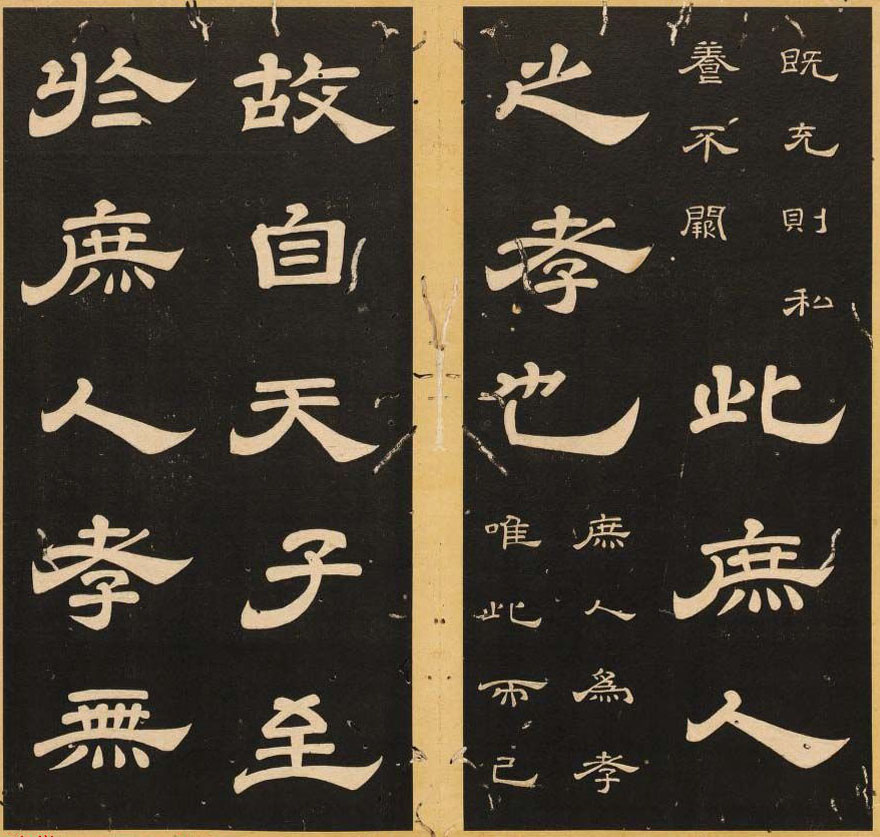 既充則私
養不闕
此庶人
之孝也
庶人為孝
唯此而已
故自天子至
於庶人孝無